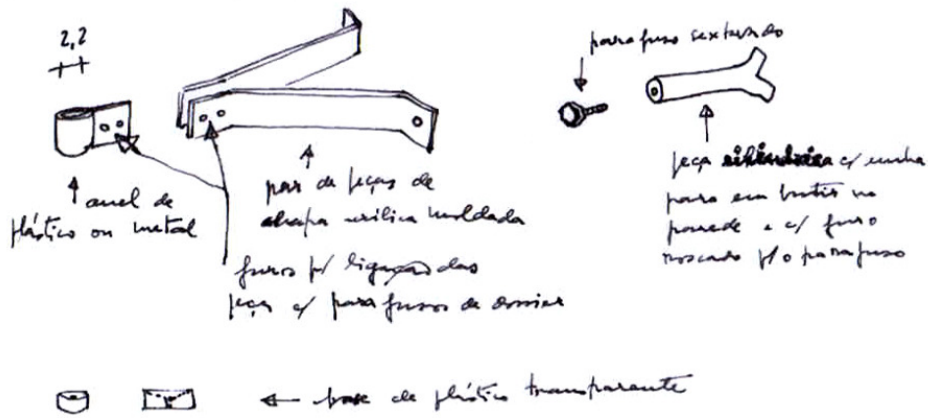 2,2
parafuso sextavado
anel de
plástico ou metal
par de peças de
chapa acrílica moldada
furos p/ ligação das
peças c/ parafusos de dossier
peça cilíndrica c/ unha
para embutir na
parede e c/ furo
roscado p/ o parafuso
base de plástico transparente